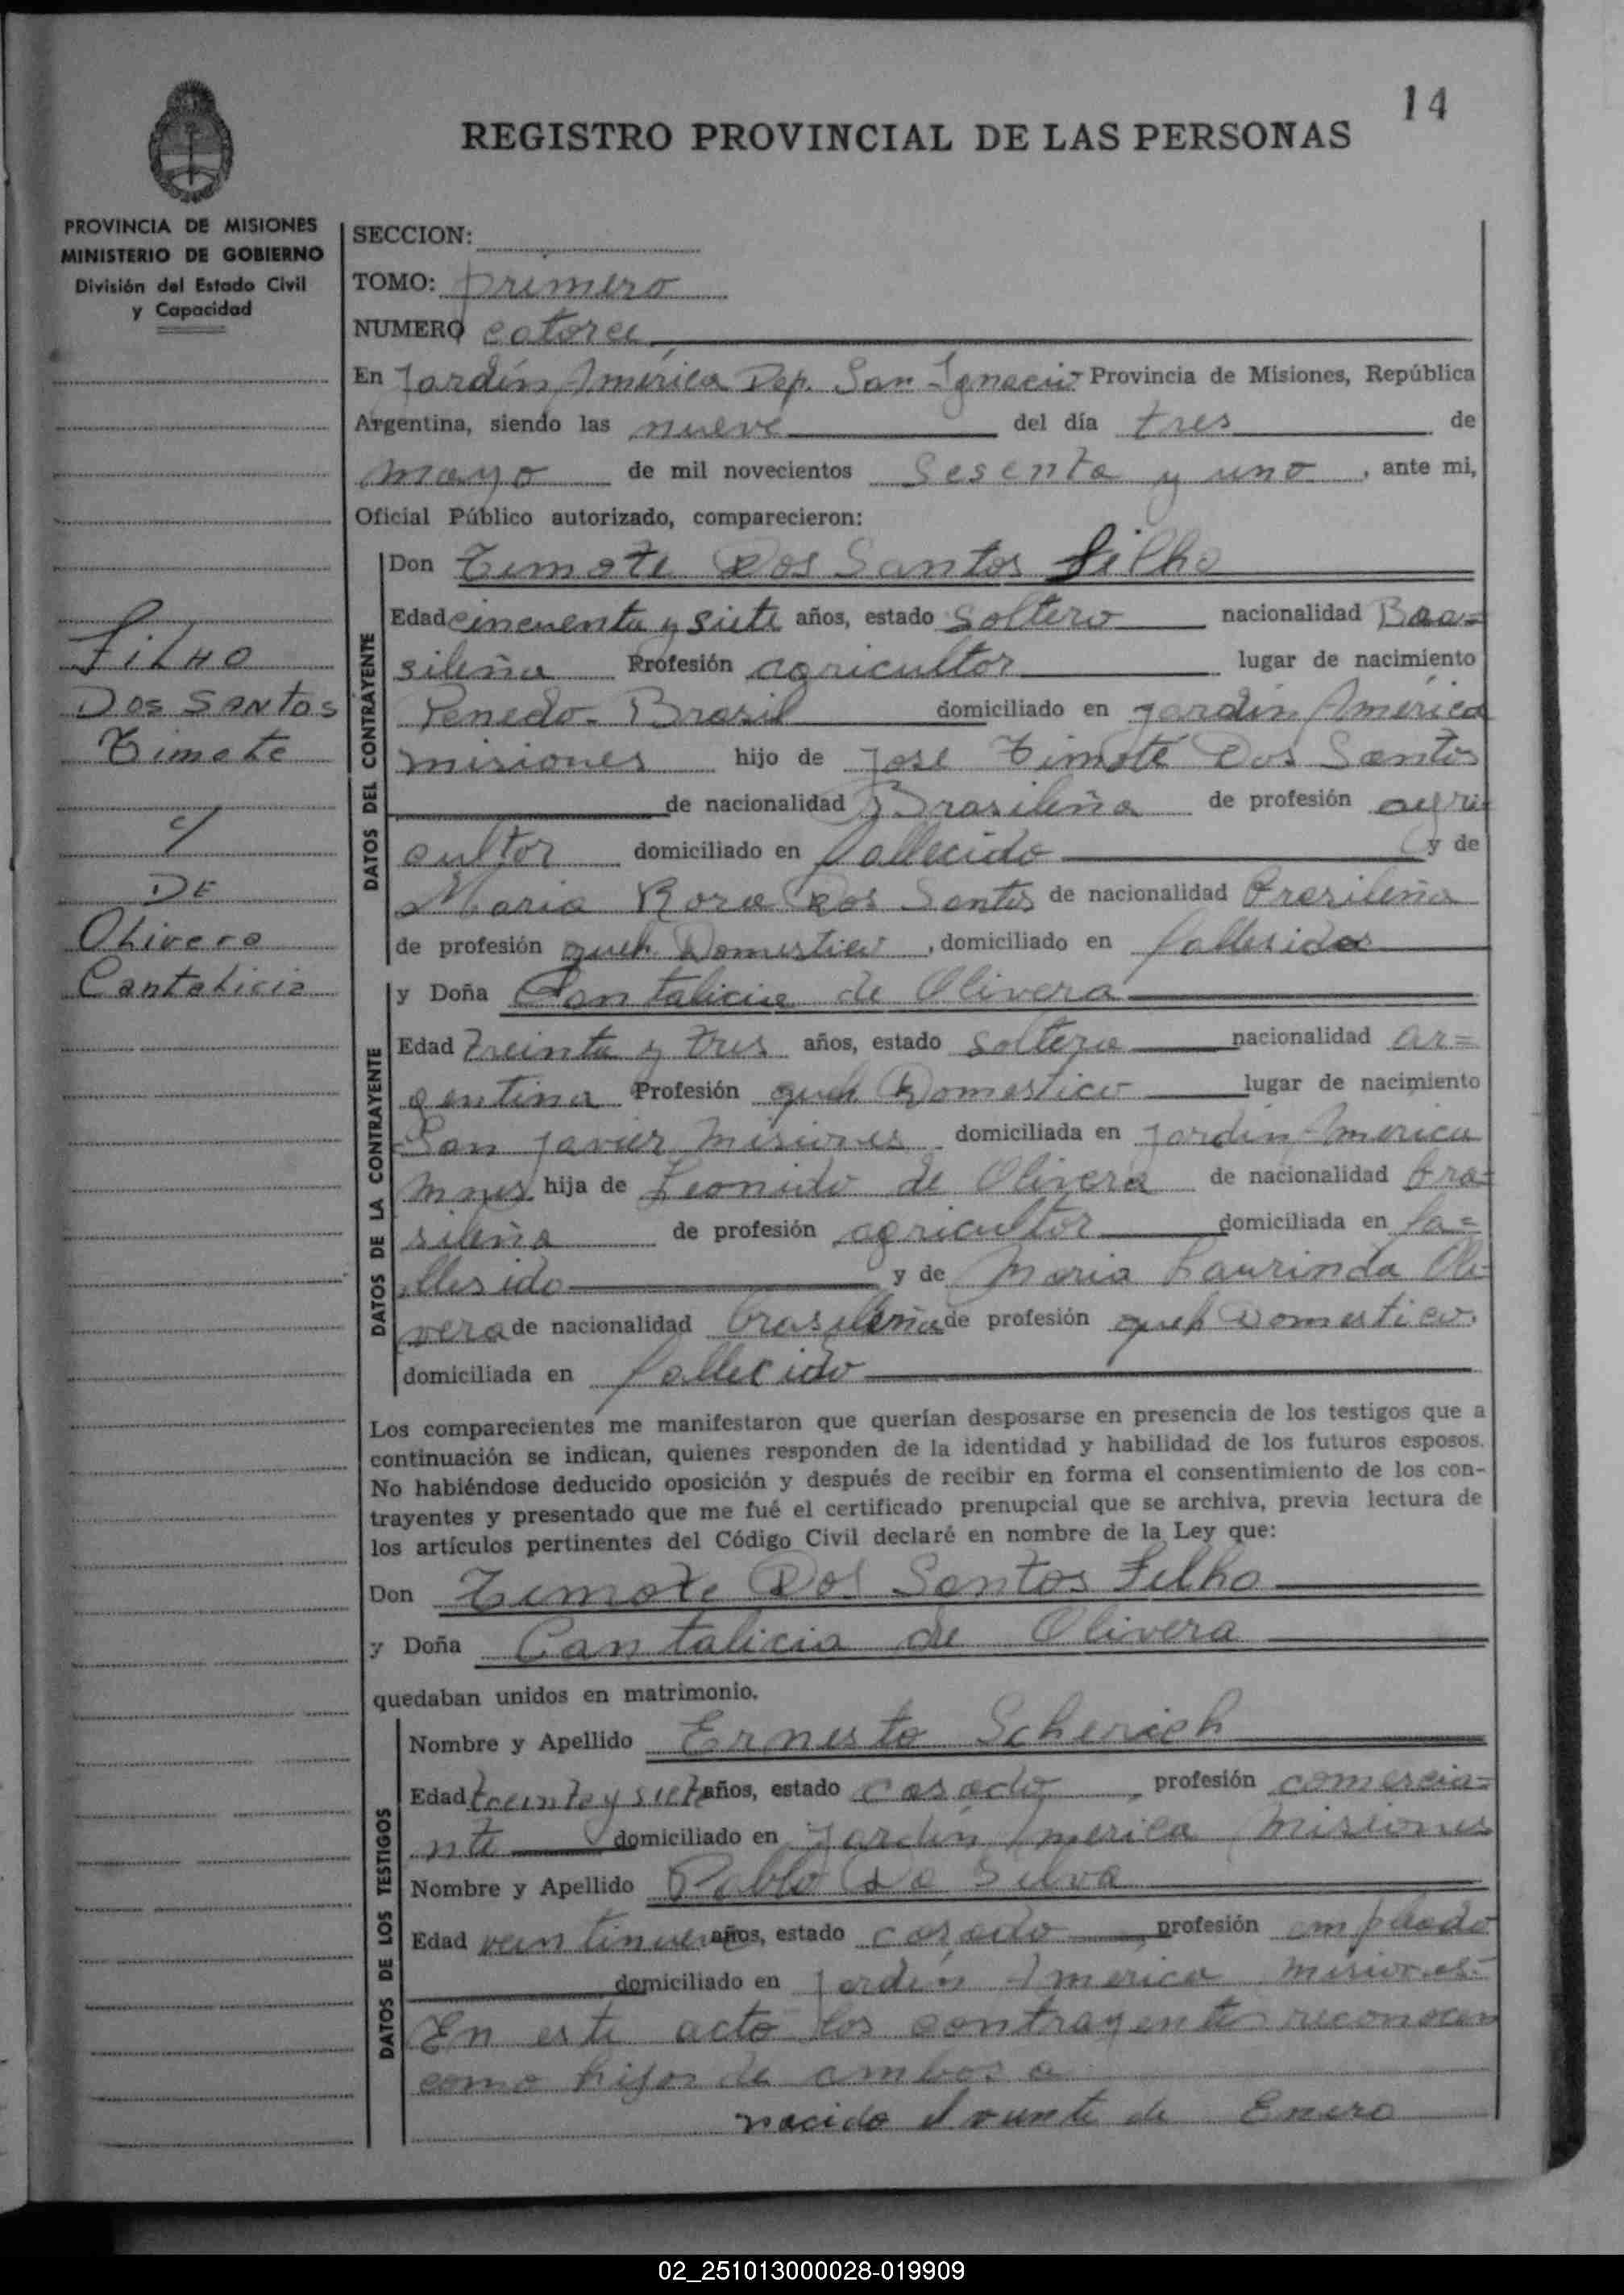 14
REGISTRO PROVINCIAL DE LAS PERSONAS
PROVINCIA DE MISIONES
MINISTERIO DE GOBIERNO
División del Estado Civil
y Capacidad
FILHO
DOS SANTOS
Timote
c/
DE
Olivera
Cantalicia
SECCION:
TOMO: primero
NUMERO catorce
En Jardín América Dep. San Ignacio Provincia de Misiones, República
Argentina, siendo las nueve del día tres de
mayo de mil novecientos Sesenta y uno, ante mi,
Oficial Público autorizado, comparecieron:
DATOS DEL CONTRAYENTE
Don Timote Dos Santos Filho
Edad cincuenta y siete años, estado Soltero nacionalidad Bra=
sileña Profesión agricultor lugar de nacimiento
Penedo-Brasil domiciliado en Jardín América
misiones hijo de José Timote Dos Santos
de nacionalidad Brasileña de profesión agri
cultor domiciliado en fallecido y de
Maria Rosa Dos Santos de nacionalidad Brasileña
de profesión queh. Domestico, domiciliado en fallesidos
DATOS DE LA CONTRAYENTE
y Doña Cantalicia de Olivera
Edad treinta y tres años, estado soltera nacionalidad ar=
gentina Profesión queh Domestico lugar de nacimiento
San Javier Misiones domiciliada en Jardín America
Mnes hija de Leonido de Olivera de nacionalidad bra=
sileña de profesión agricultor domiciliada en fa=
llesido y de Maria Laurinda Oli-
vera de nacionalidad brasileña de profesión queh Domestico.
domiciliada en fallecido
Los comparecientes me manifestaron que querían desposarse en presencia de los testigos que a
continuación se indican, quienes responden de la identidad y habilidad de los futuros esposos.
No habiéndose deducido oposición y después de recibir en forma el consentimiento de los con-
trayentes y presentado que me fué el certificado prenupcial que se archiva, previa lectura de
los artículos pertinentes del Código Civil declaré en nombre de la Ley que:
Don Timote Dos Santos Filho
y Doña Cantalicia de Olivera
quedaban unidos en matrimonio.
DATOS DE LOS TESTIGOS
Nombre y Apellido Ernesto Scherich
Edad treinta y siete años, estado casado, profesión comercia=
nte domiciliado en Jardín America Misiones
Nombre y Apellido Pablo Da Silva
Edad veintinueve años, estado casado, profesión empleado
domiciliado en Jardín America misiones.-
En este acto los contrayentes reconocen
como hijos de ambos a
nacido el veinte de Enero
02_251013000028-019909